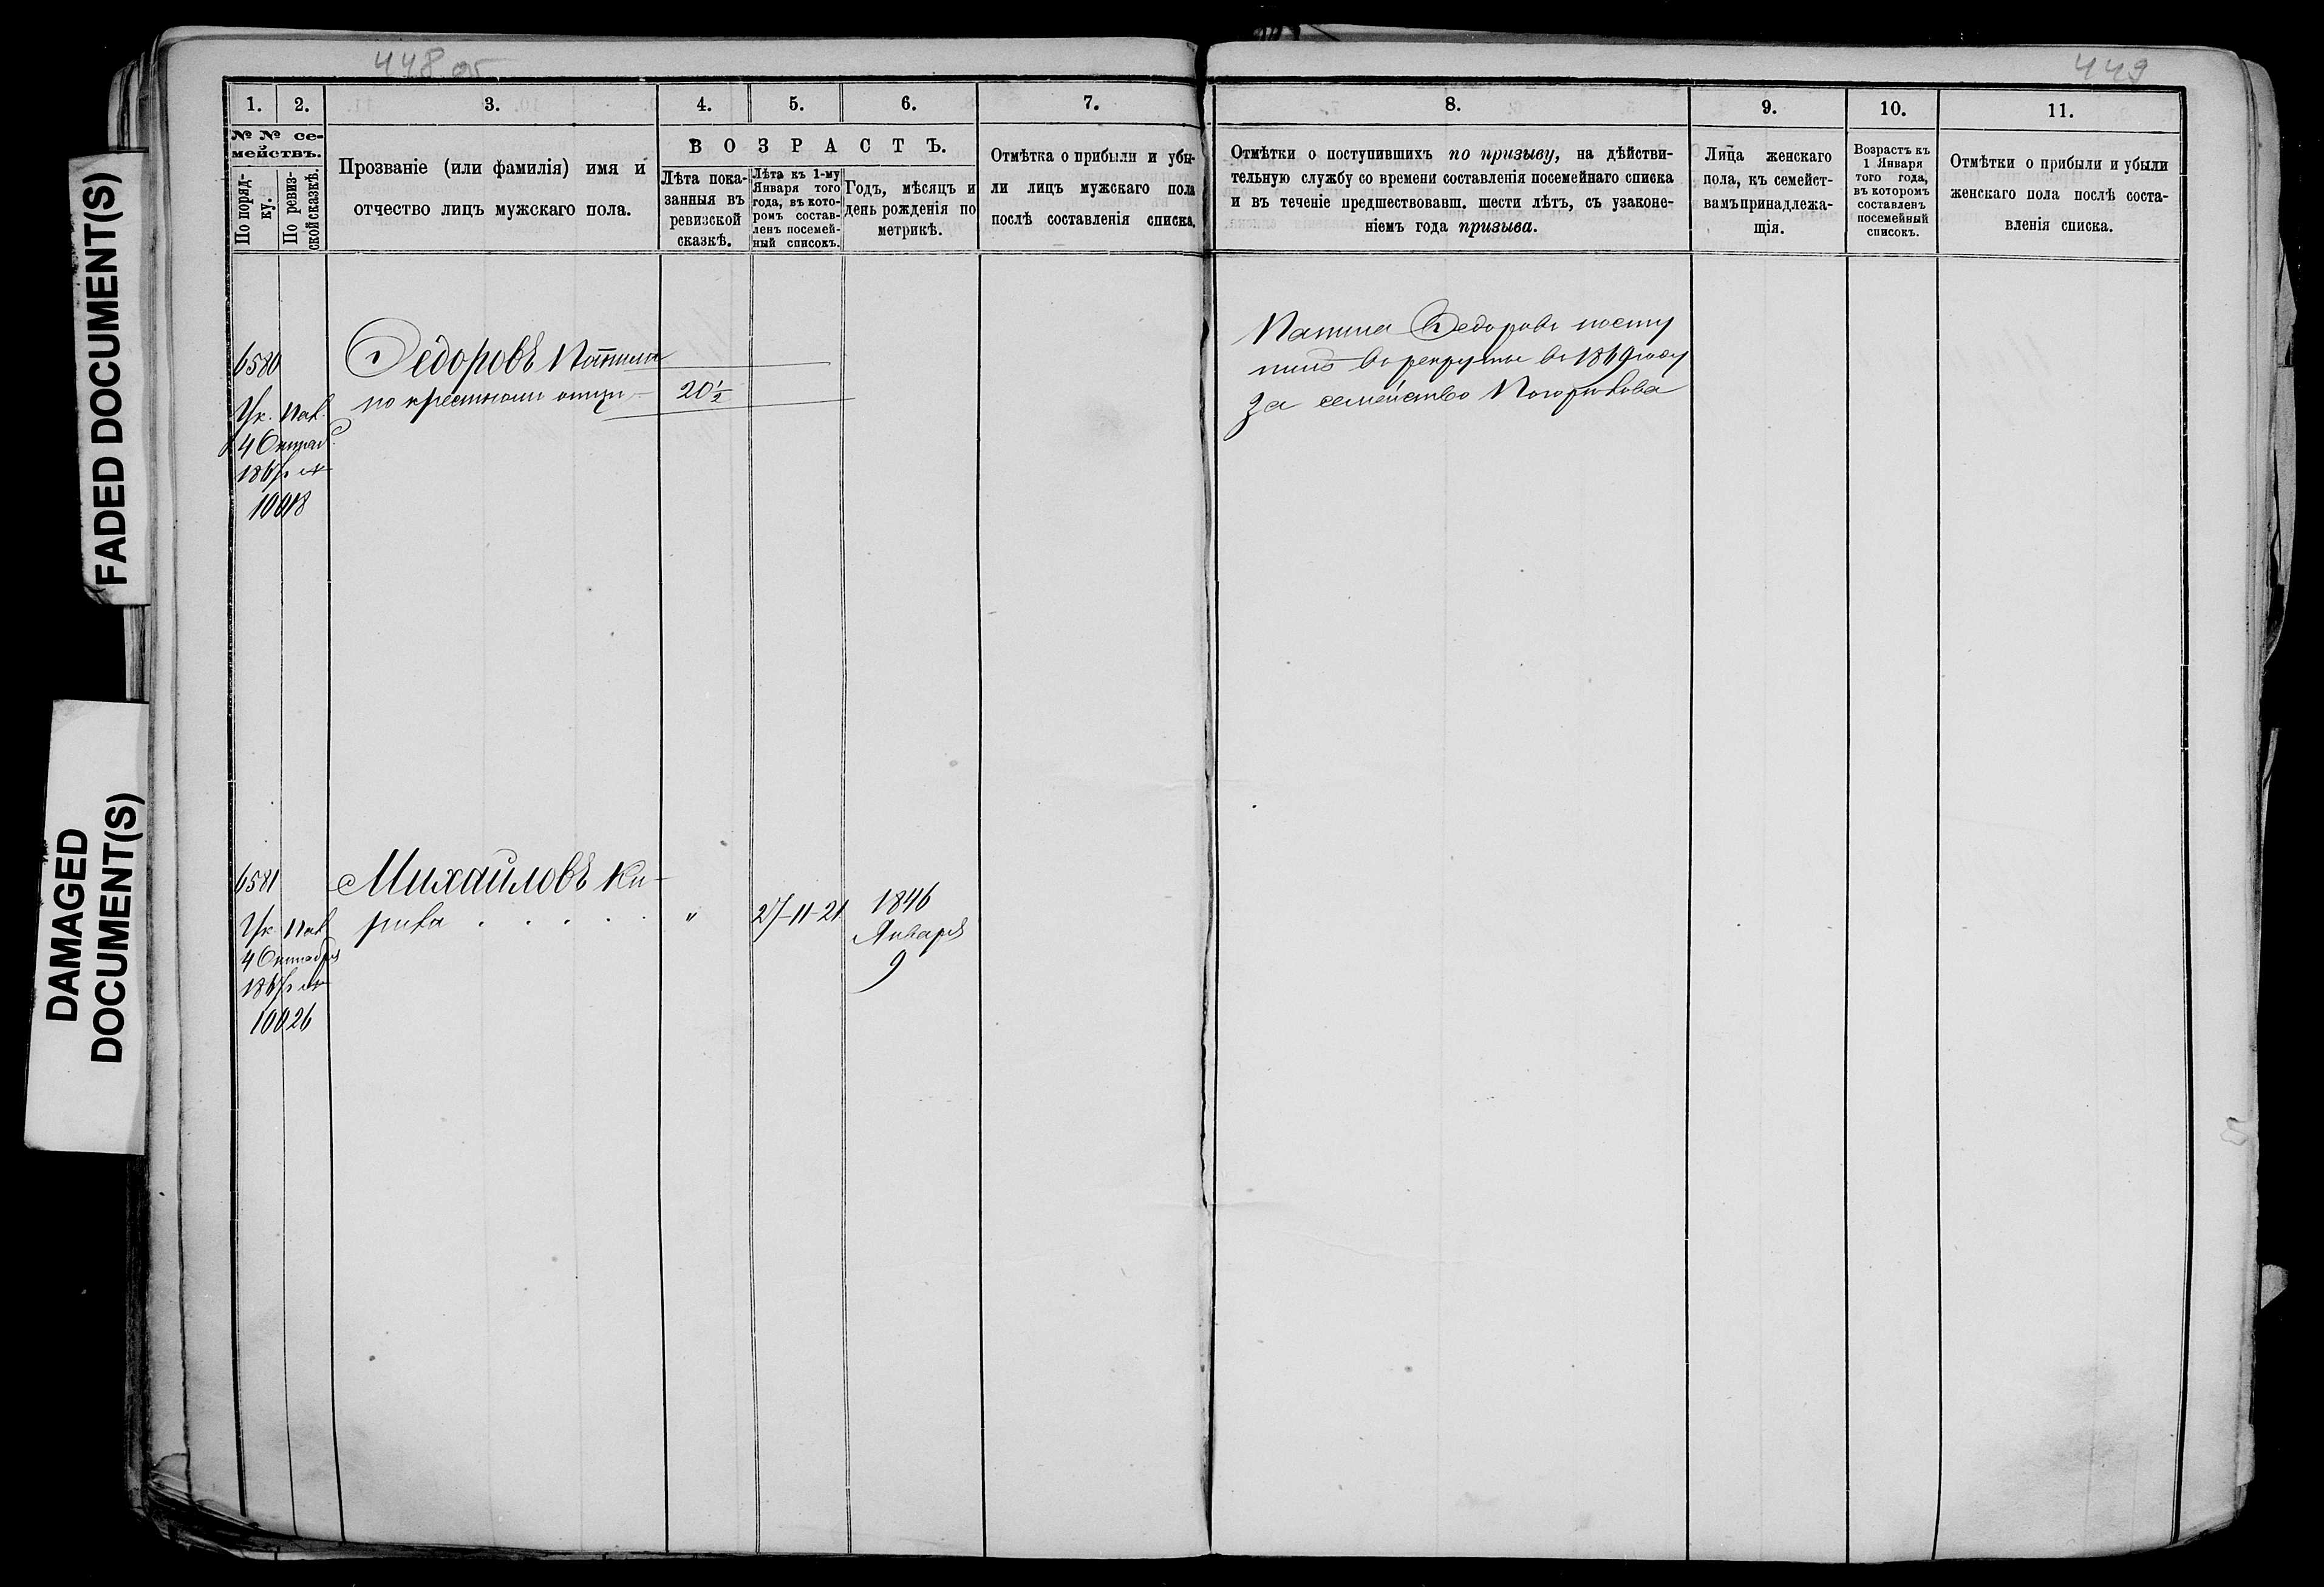 448 об
449
FADED DOCUMENT(S)
DAMAGED
DOCUMENT(S)
1.
2.
3.
4.
5.
6.
7.
№ № се-
мействъ.
По поряд-
ку.
По ревиз-
ской сказкѣ.
Прозваніе (или фамилія) имя и
отчество лицъ мужскаго пола.
ВОЗРАСТЪ.
Лѣта пока-
занныя въ
ревизской
сказкѣ.
Лѣта къ 1-му
Января того
года, въ кото-
ромъ состав-
ленъ посемей-
ный списокъ.
Годъ, мѣсяцъ и
день рожденія по
метрикѣ.
Отмѣтка о прибыли и убы-
ли лицъ мужскаго пола
послѣ составленія списка.
8.
9.
10.
11.
Отмѣтки о поступившихъ по призыву, на дѣйстви-
тельную службу со времени составленія посемейнаго списка
и въ теченіе предшествовавш. шести лѣтъ, съ узаконе-
ніемъ года призыва.
Лица женскаго
пола, къ семейст-
вамъ принадлежа-
щія.
Возрастъ къ
1 Января
того года,
въ которомъ
составленъ
посемейный
списокъ.
Отмѣтки о прибыли и убыли
женскаго пола послѣ соста-
вленія списка.
6580
Ук. Пал.
4 Октяб.
1867 г. №
10018
Федоровъ
по крестному отцу
20½
Федоровъ посту
пилъ въ рекруты въ 1869 году
за семейство
6581
Ук. Пал.
4 Октября
1867 г. №
10026
Михайловъ Ки-
рива . . . . .
"
27-11-21
1846
Января
9